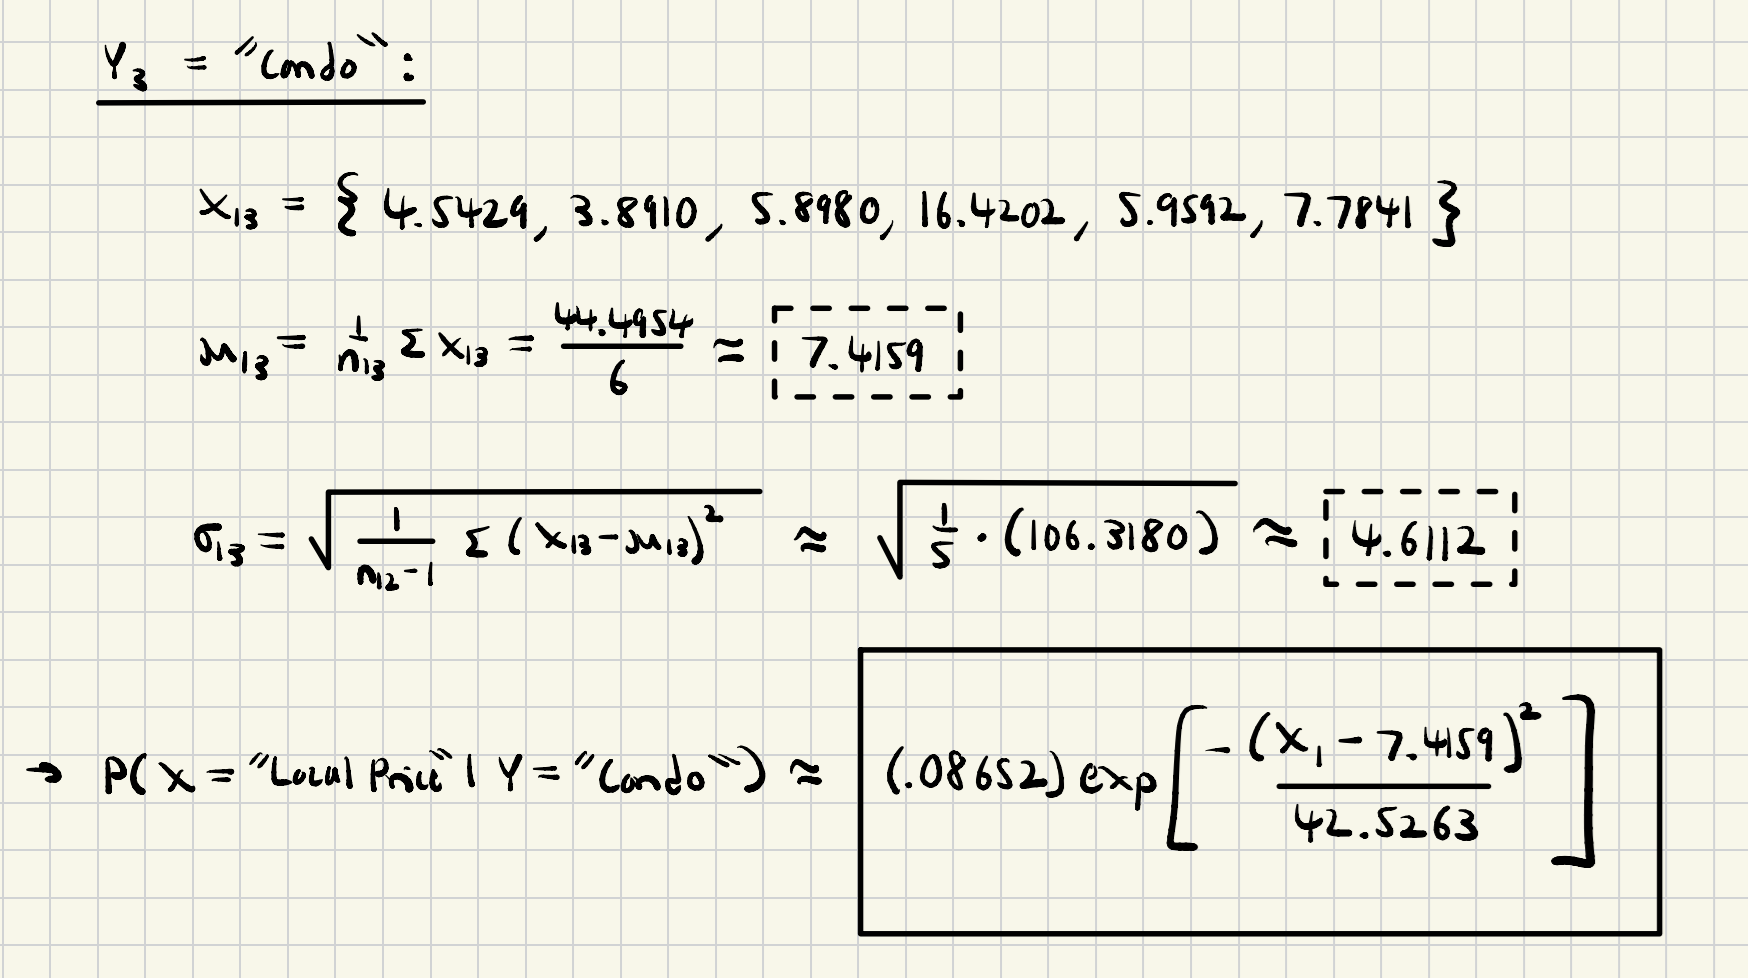 Y₃ = "Condo":
X₁₃ = { 4.5429, 3.8910, 5.8980, 16.4202, 5.9592, 7.7841 }
μ₁₃ = 1/n₁₃ Σ X₁₃ = 44.4954/6 ≈ 7.4159
σ₁₃ = √(1/(n₁₂-1) Σ (X₁₃-μ₁₃)²) ≈ √(1/5 · (106.3180)) ≈ 4.6112
→ P( X = "Local Price" | Y = "Condo") ≈ (.08652) exp[ -(X₁ - 7.4159)²/42.5263 ]